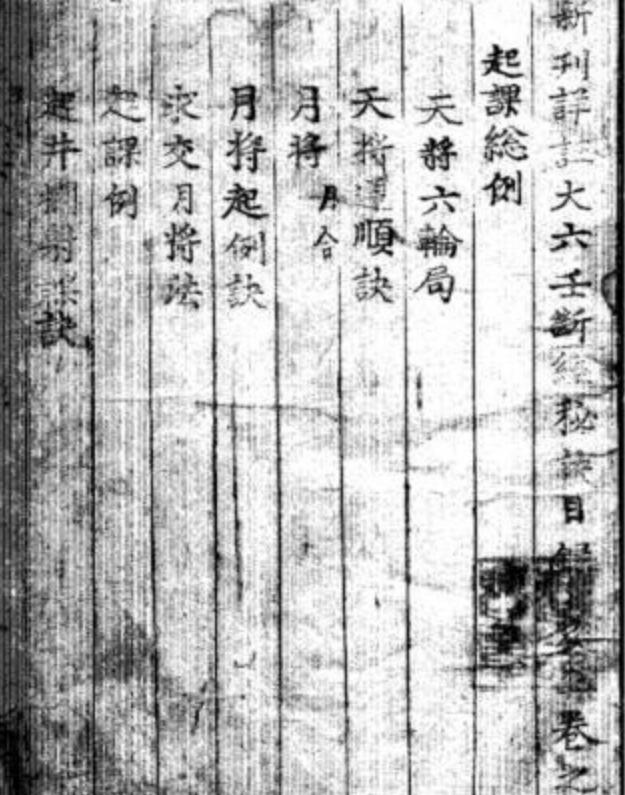 新刊詳註大六壬斷經秘訣目錄 卷之
起課総例
天將六輪局
天將逆順訣
月將 月合
月將起例訣
求交月將法
起課例
起井欄射謀訣